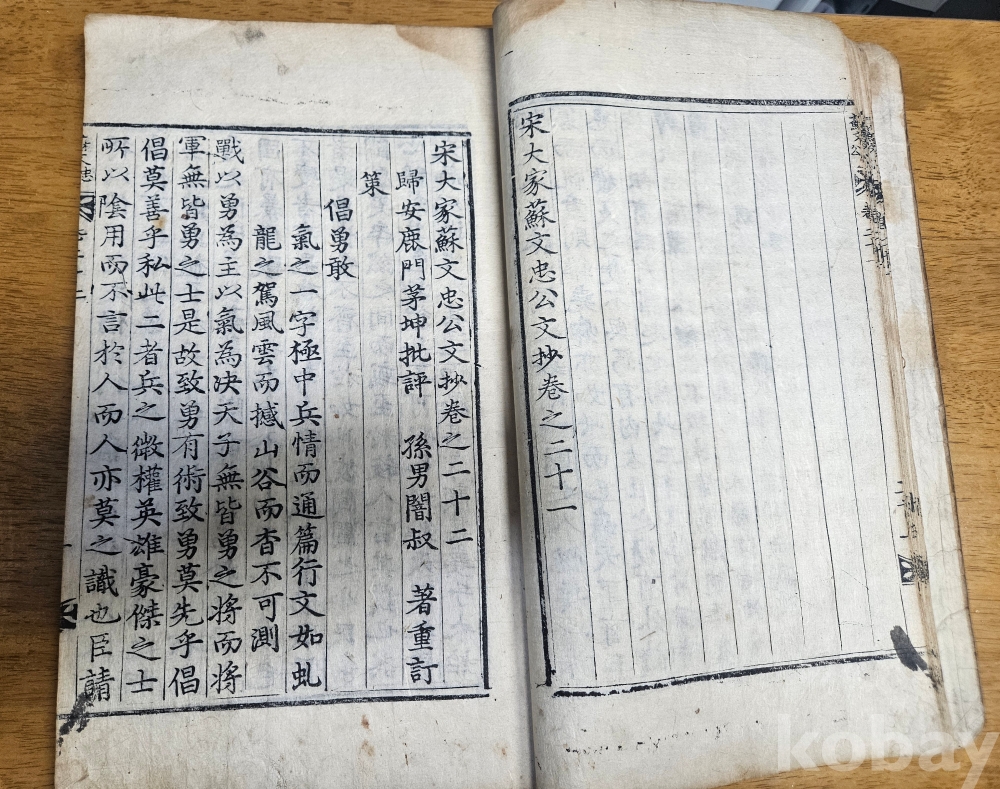 宋大家蘇文忠公文抄卷之二十一
宋大家蘇文忠公文抄卷之二十二
歸安鹿門茅坤批評 孫男闇叔 著重訂
策
倡勇敢
氣之一字極中兵情而通篇行文如虬
龍之駕風雲而撼山谷而杳不可測
戰以勇為主以氣為决天子無皆勇之將而將
軍無皆勇之士是故致勇有術致勇莫先乎倡
倡莫善乎私此二者兵之微權英雄豪傑之士
所以陰用而不言於人而人亦莫之識也臣請
kobay